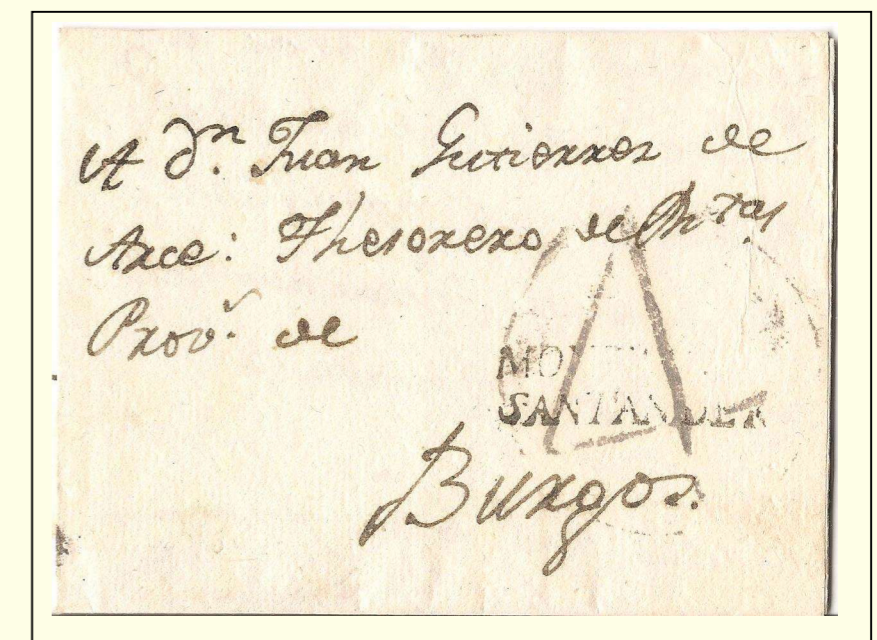 A Dn. Juan Gutierrez de
Arce: Thesorero de Rtas
Prov.s de
SANTANDER
Burgos.